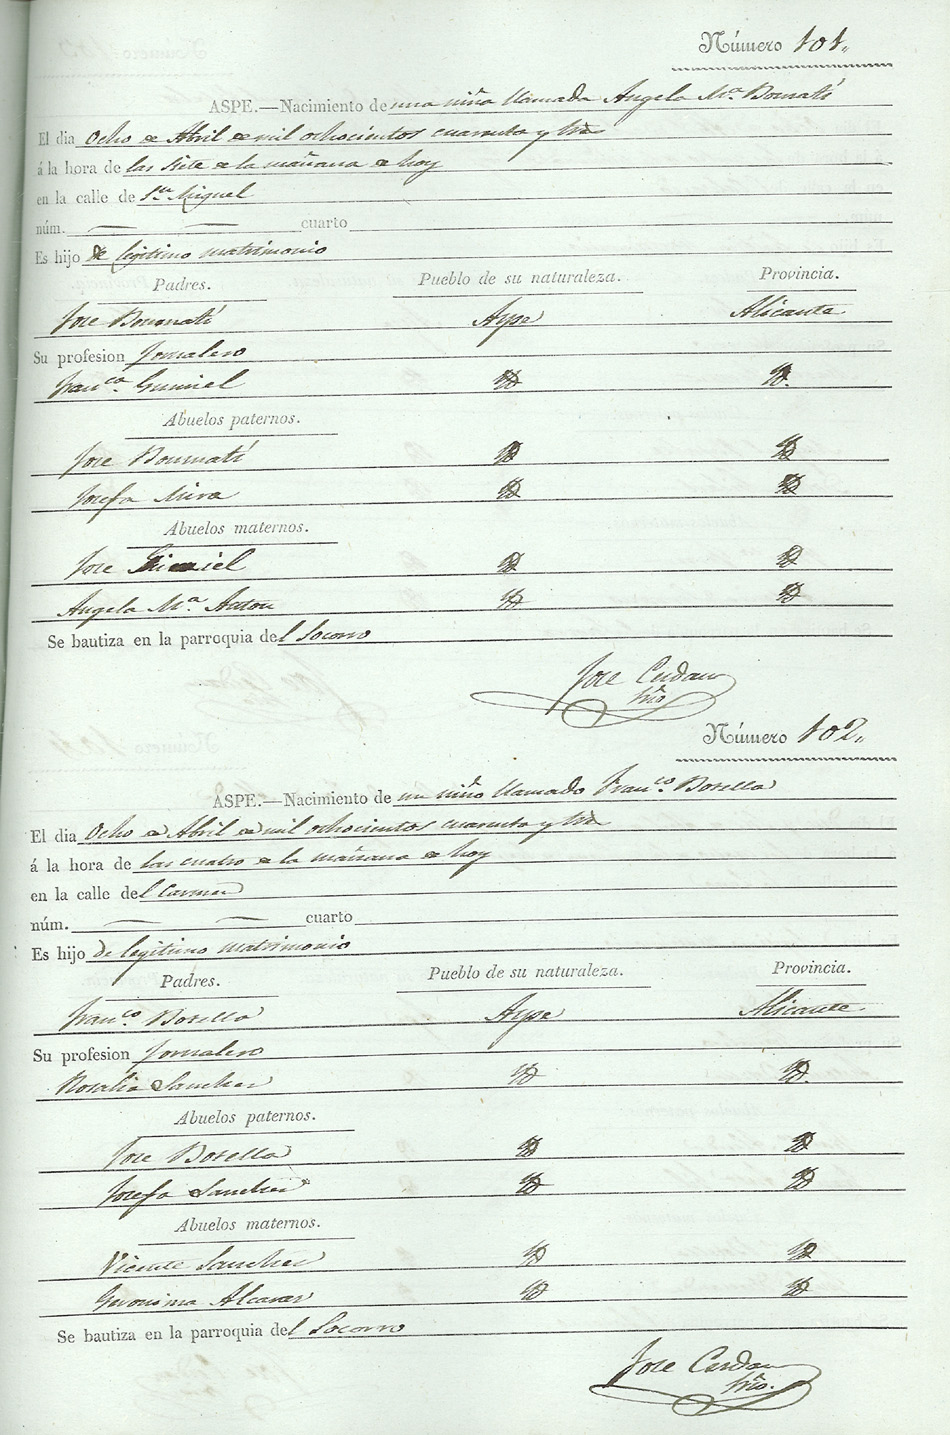 Número 101.,
ASPE.—Nacimiento de una niña llamada Angela Mª. Bonmatí
El dia Ocho de Abril de mil ochocientos cuarenta y tres
á la hora de las siete de la mañana de hoy
en la calle de Sn. Miguel
núm. — — cuarto
Es hijo de legítimo matrimonio
Padres. Pueblo de su naturaleza. Provincia.
Jose Bonmatí Aspe Alicante
Su profesion Jornalero
Franca. Gumiel Yd Yd.
Abuelos paternos.
Jose Bonmatí Yd Yd
Josefa Mira Yd Yd
Abuelos maternos.
Jose Gumiel Yd Yd
Angela Mª Anton Yd Yd
Se bautiza en la parroquia del Socorro
Jose Cerdan
Srio.
Número 102.,
ASPE.—Nacimiento de un niño llamado Franco. Botella
El dia Ocho de Abril de mil ochocientos cuarenta y tres
á la hora de las cuatro de la mañana de hoy
en la calle del Carmen
núm. — — cuarto
Es hijo de legitimo matrimonio
Padres. Pueblo de su naturaleza. Provincia.
Franco. Botella Aspe Alicante
Su profesion Jornalero
Rosalia Sanchez Yd Yd.
Abuelos paternos.
Jose Botella Yd Yd
Josefa Sanchez Yd Yd
Abuelos maternos.
Vicente Sanchez Yd Yd
Geronima Alcaraz Yd Yd
Se bautiza en la parroquia del Socorro
Jose Cerdan
Srio.